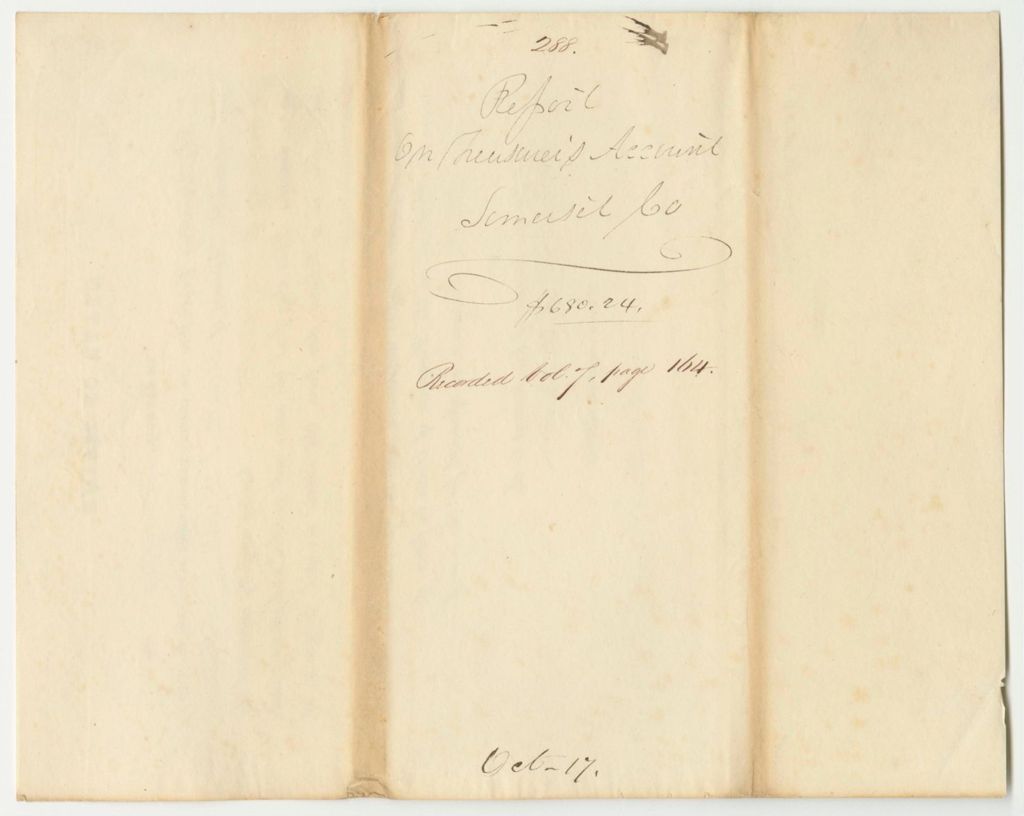 288.
Report
On Treasurer's Account
Somerset Co
$680.24.
Recorded Vol. 7, page 164.
Oct- 17.